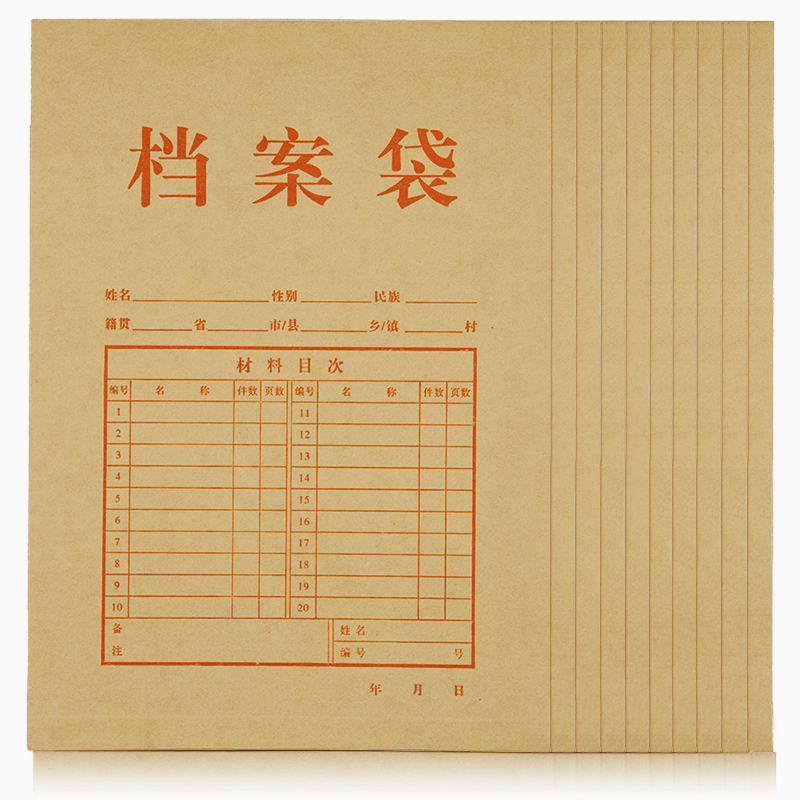 档案袋
姓名 性别 民族
籍贯 省 市/县 乡/镇 村
材料目次
编号 名 称 件数 页数 编号 名 称 件数 页数
1 11
2 12
3 13
4 14
5 15
6 16
7 17
8 18
9 19
10 20
备注
姓名
编号 号
年 月 日